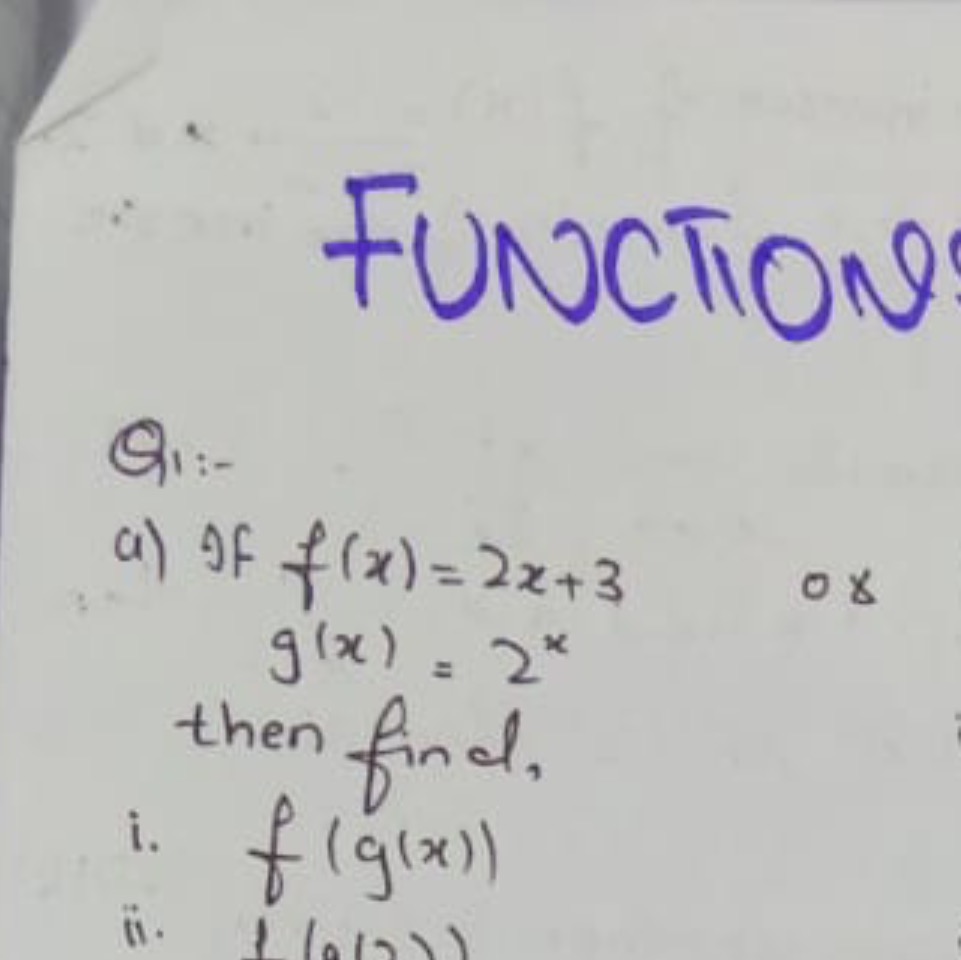 FUNCTIONS
Q1:-
a) If f(x) = 2x+3 or
g(x) = 2^x
then find,
i. f(g(x))
ii.